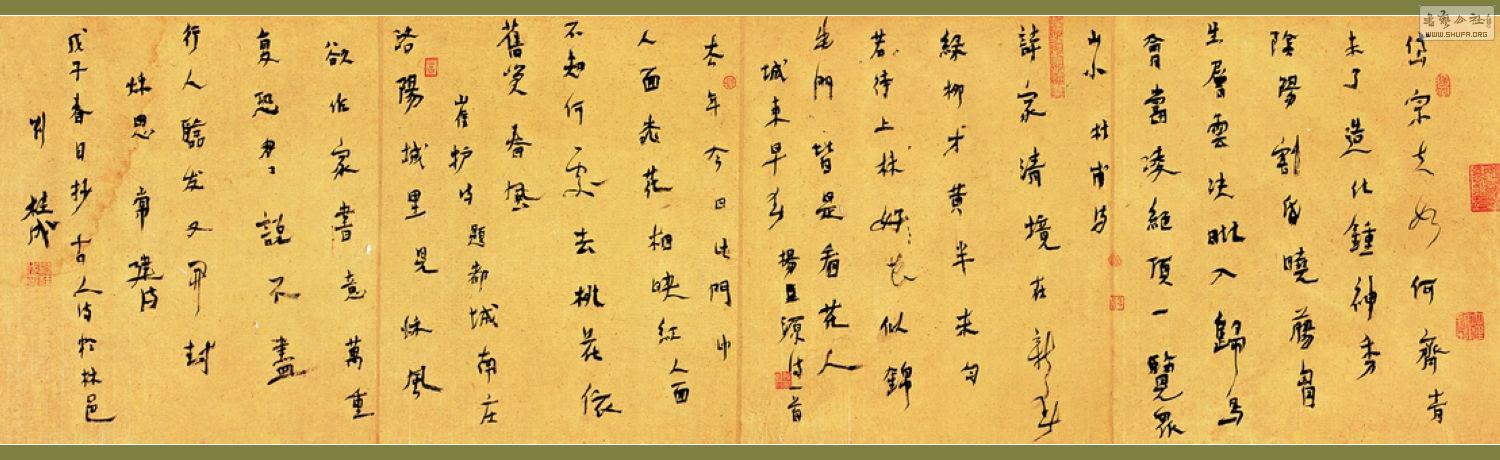 岱宗夫如何齊青
未了造化鍾神秀
陰陽割昏曉蕩胷
生層雲决眦入歸鳥
會當凌絕頂一覽衆
山小 杜甫诗
詩家清境在新春
綠柳才黃半未匀
若待上林好花似錦
出門皆是看花人
城東早春 楊巨源诗一首
去年今日此門中
人面桃花相映紅人面
不知何處去桃花依
舊笑春風
崔护诗 題都城南庄
洛陽城里見秋風
欲作家書意萬重
复恐匆匆說不盡
行人臨发又开封
秋思 常建诗
戊子春日抄古人诗於林邑
刘桂成
WWW.SHUFA.ORG